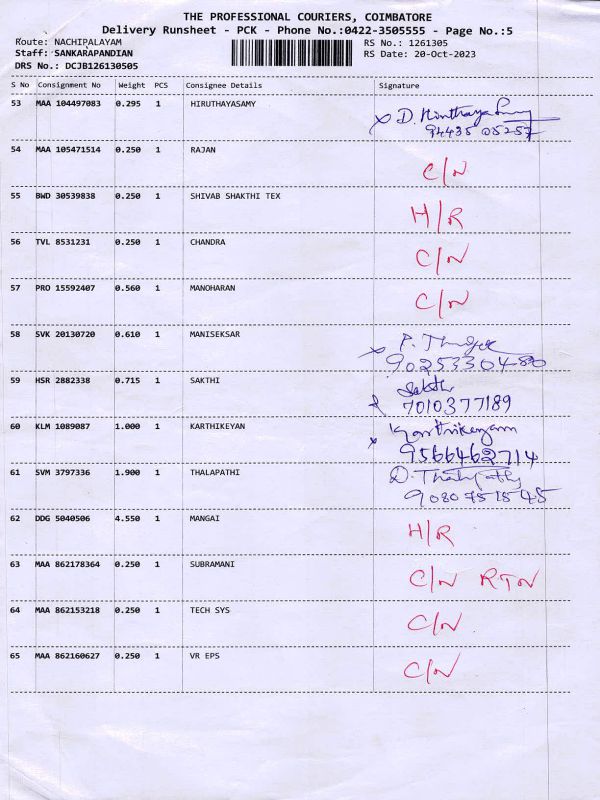 THE PROFESSIONAL COURIERS, COIMBATORE
Delivery Runsheet - PCK - Phone No.:0422-3505555 - Page No.:5
Route: NACHIPALAYAM RS No.: 1261305
Staff: SANKARAPANDIAN RS Date: 20-Oct-2023
DRS No.: DCJB126130505
S No Consignment No Weight PCS Consignee Details Signature
53 MAA 104497083 0.295 1 HIRUTHAYASAMY x D. Hiruthayasamy
94435 05257
54 MAA 105471514 0.250 1 RAJAN C/N
55 BWD 30539838 0.250 1 SHIVAB SHAKTHI TEX H/R
56 TVL 8531231 0.250 1 CHANDRA C/N
57 PRO 15592407 0.560 1 MANOHARAN C/N
58 SVK 20130720 0.610 1 MANISEKSAR x P.
9025330480
59 HSR 2882338 0.715 1 SAKTHI Sakthi
7010377189
60 KLM 1089087 1.000 1 KARTHIKEYAN x Karthikeyan
9566462714
61 SVM 3797336 1.900 1 THALAPATHI D. Thalapathy
9080751545
62 DDG 5040506 4.550 1 MANGAI H/R
63 MAA 862178364 0.250 1 SUBRAMANI C/N RTN
64 MAA 862153218 0.250 1 TECH SYS C/N
65 MAA 862160627 0.250 1 VR EPS C/N